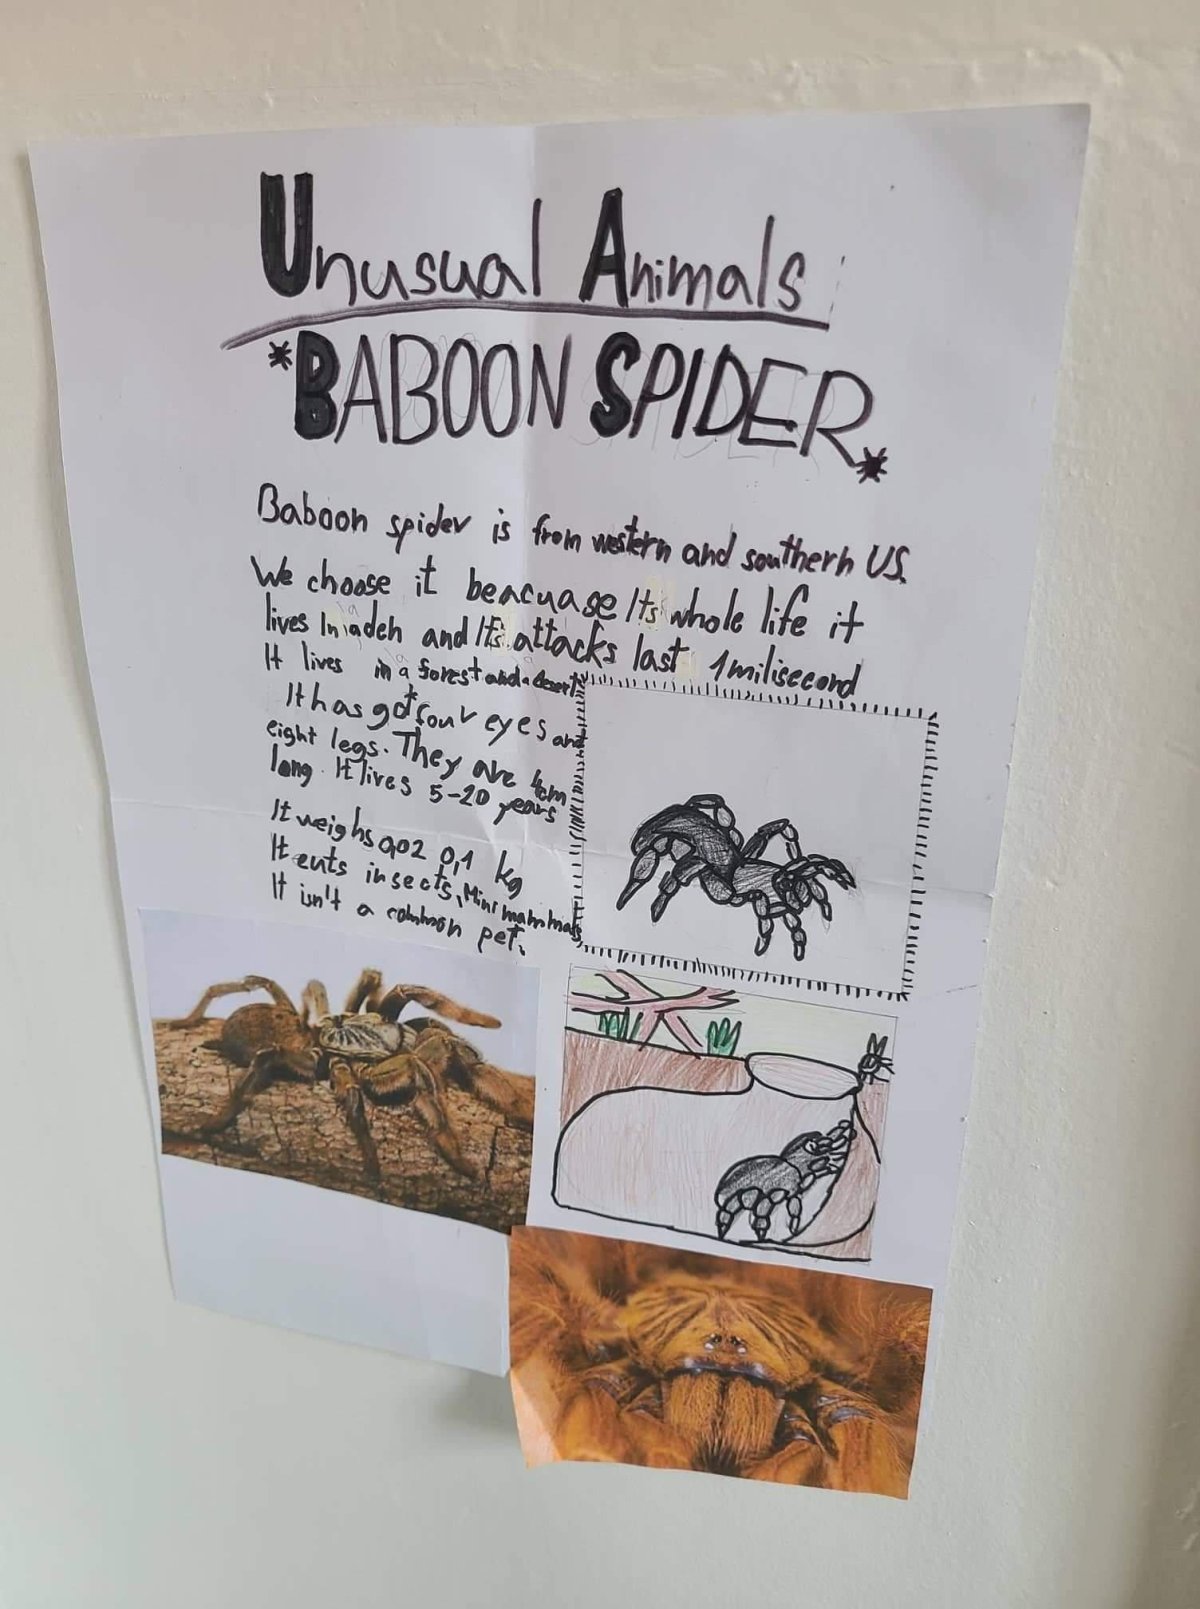 Unusual Animals
*BABOON SPIDER*
Baboon spider is from western and southern US.
We choose it beacuase Its whole life it
lives In a deh and Its attacks last 1 milisecond
It lives in a forest and a desert
It has got four eyes and
eight legs. They are 4cm
long. It lives 5-20 years
It weighs 0,02 0,1 kg
It eats insects, Mini mammals,
It isn't a common pet.